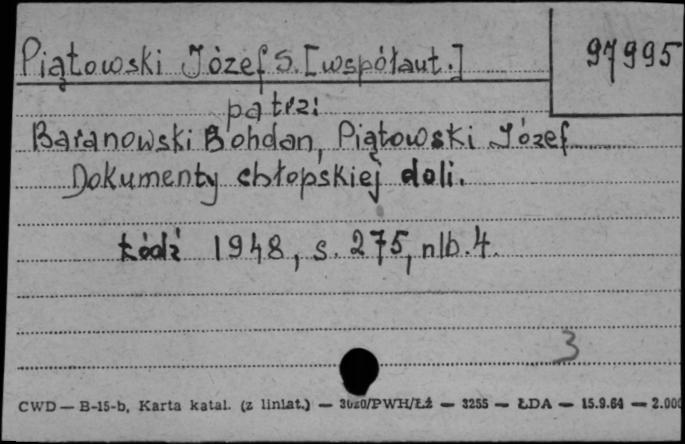 Piątowski Józef S. [współaut.]
97995
patrz:
Baranowski Bohdan, Piątowski Józef
Dokumenty chłopskiej doli.
Łódź 1948, s. 275, nlb. 4.
3
CWD — B-15-b, Karta katal. (z liniat.) — 3020/PWH/Łż — 3255 — ŁDA — 15.9.64 — 2.000